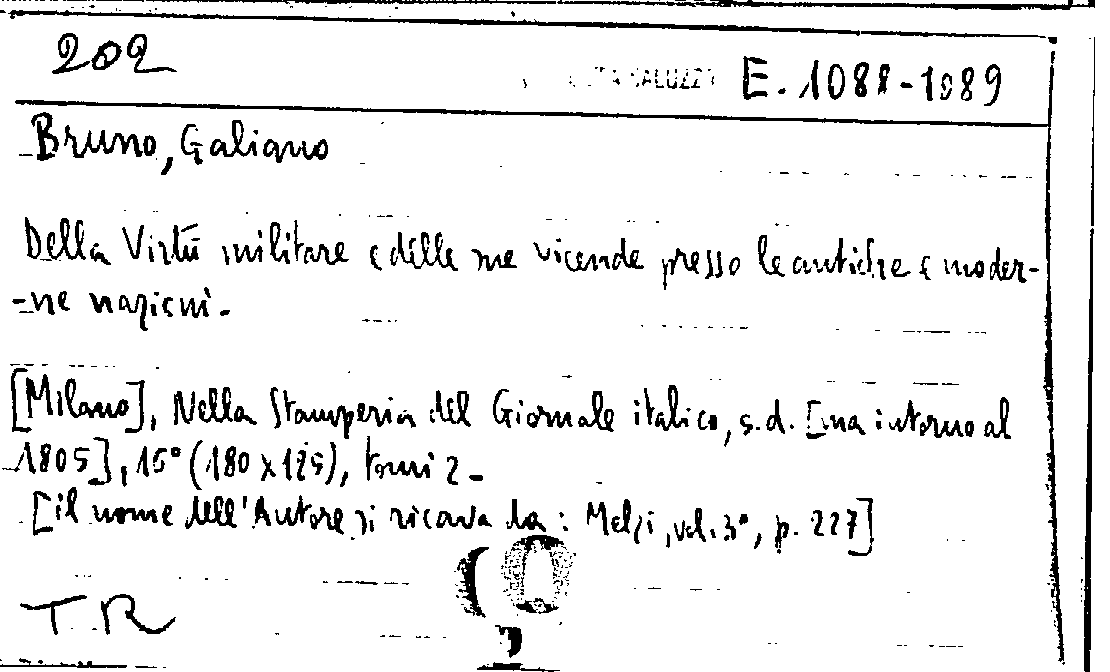 202
SALUZZO E. 1088-1089
Bruno, Galiano
Della Virtù militare e delle sue vicende presso le antiche e moder-
-ne nazioni.
[Milano], Nella Stamperia del Giornale italico, s.d. [ma intorno al
1805], 16° (180 x 125), tomi 2-
[il nome dell'Autore si ricava da: Melzi, vol. 3°, p. 227]
T.R